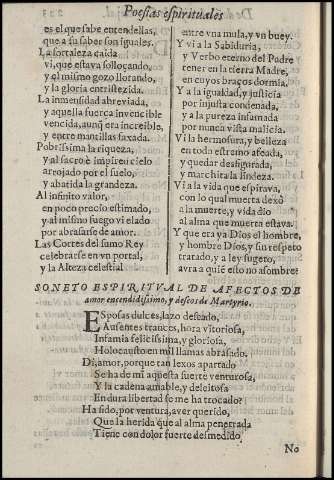 Poesias espirituales
es el que sabe entendellas,
que a su saber son iguales.
La fortaleza caida
vi, que estaua solloçando,
y el mismo gozo llorando,
y la gloria entristezida.
La inmensidad abreuiada,
y aquella fuerça inuencible
vencida, aunq̃ era increible,
y entre mantillas faxada.
Pobrissima la riqueza,
y al sacro è impireo cielo
arrojado por el suelo,
y abatida la grandeza.
Al infinito valor,
en poco precio estimado,
y al mismo fuego vi elado
por abrasarse de amor.
Las Cortes del sumo Rey
celebrarse en vn portal,
y la Alteza celestial
entre vna mula, y vn buey.
Y vi a la Sabiduria,
y Verbo eterno del Padre
tener en la tierra Madre,
en cuyos braços dormia.
Y a la igualdad, y justicia
por injusta condenada,
y a la pureza infamada
por nunca vista malicia.
Vi la hermosura, y belleza
en todo estremo afeada,
y quedar desfigurada,
y marchita la lindeza.
Vi a la vida que espiraua,
con lo qual muerta dexò
a la muerte, y vida dio
al alma que muerta estaua.
Y que era ya Dios el hombre,
y hombre Dios, y su respeto
tratado, y a ley sugeto,
aura a quiē esto no asombre?
SONETO ESPIRITVAL DE AFECTOS DE
amor encendidissimo, y deseos de Martyrio.
ESposas dulces, lazo deseado,
Ausentes trances, hora vitoriosa,
Infamia felicissima, y gloriosa,
Holocausto en mil llamas abrasado.
Di, amor, porque tan lexos apartado
Se ha de mi aquesta suerte venturosa,
Y la cadena amable, y deleitosa
En dura libertad se me ha trocado?
Ha sido, por ventura, auer querido,
Que la herida que al alma penetrada
Tiene con dolor fuerte desmedido,
No